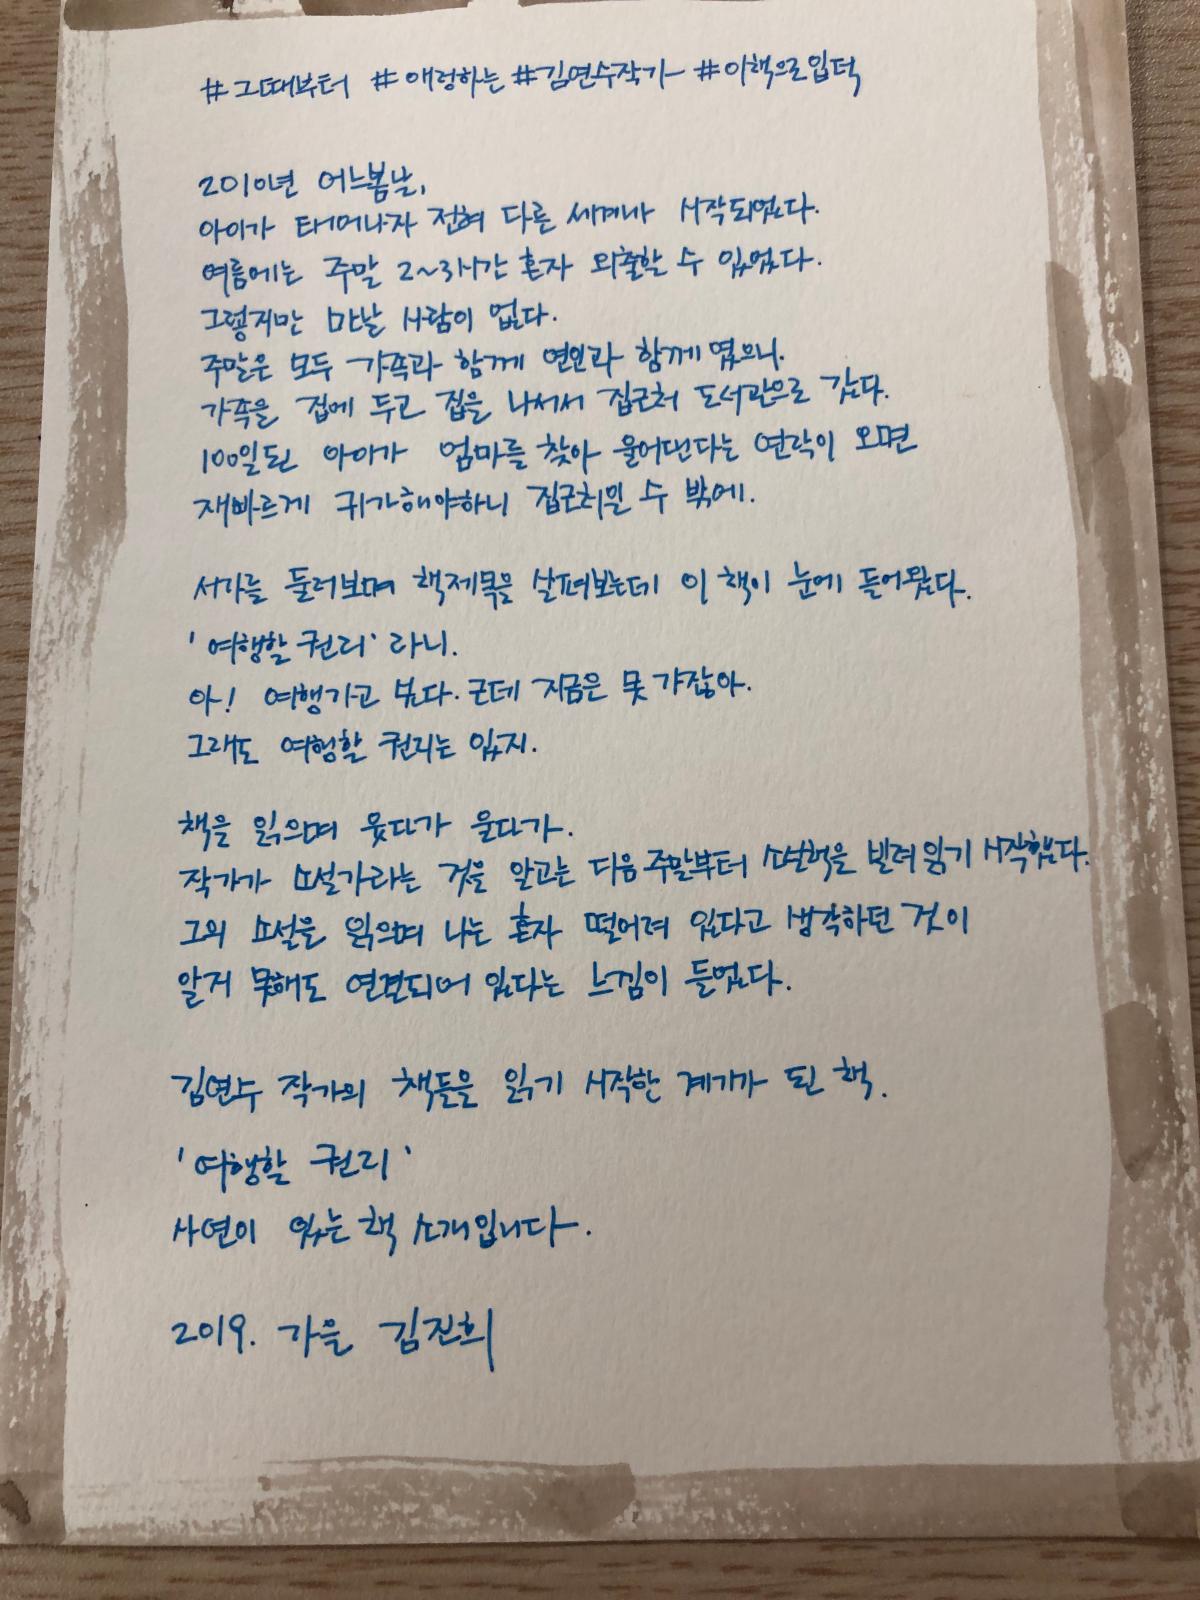 #그때부터 #애정하는 #김연수작가 #이책으로입덕
2010년 어느봄날,
아이가 태어나자 전혀 다른 세계가 시작되었다.
여름에는 주말 2~3시간 혼자 외출할 수 있었다.
그렇지만 만날 사람이 없다.
주말은 모두 가족과 함께 연인과 함께였으니.
가족을 집에 두고 집을 나서서 집근처 도서관으로 갔다.
100일된 아이가 엄마를 찾아 울어댄다는 연락이 오면
재빠르게 귀가해야하니 집근처일 수 밖에.
서가를 둘러보며 책제목을 살펴보는데 이 책이 눈에 들어왔다.
'여행할 권리' 라니.
아! 여행가고 싶다. 근데 지금은 못 가잖아.
그래도 여행할 권리는 있지.
책을 읽으며 웃다가 울다가.
작가가 소설가라는 것을 알고는 다음 주말부터 소설책을 빌려 읽기 시작했다.
그의 소설을 읽으며 나는 혼자 떨어져 있다고 생각하던 것이
알지 못해도 연결되어 있다는 느낌이 들었다.
김연수 작가의 책들을 읽기 시작한 계기가 된 책.
'여행할 권리'
사연이 있는 책 소개입니다.
2019. 가을 김진희